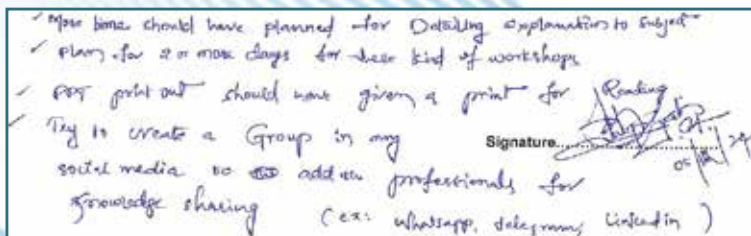 ✓ More time should have planned for Detailing explanation to subject
✓ plan for 2 or more days for these kind of workshops
✓ PPT print out should have given a print for Reading
✓ Try to create a Group in any
Signature
social media so add professionals for
knowledge sharing (ex: whatsapp, telegram, Linkedin)